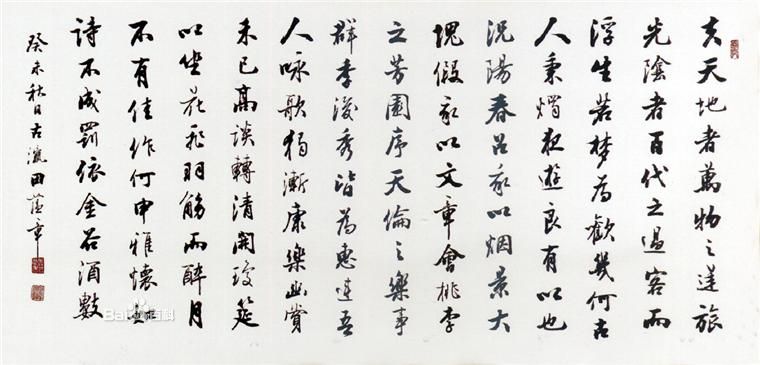 夫天地者萬物之逆旅
光陰者百代之過客而
浮生若夢為歡幾何古
人秉燭夜遊良有以也
況陽春召我以烟景大
塊假我以文章會桃李
之芳園序天倫之樂事
群季俊秀皆為惠連吾
人咏歌獨慚康樂幽賞
未已高談轉清開瓊筵
以坐花飛羽觴而醉月
不有佳作何申雅懷如
詩不成罰依金谷酒數
癸未秋日古瀛田蘊章
Bai百科